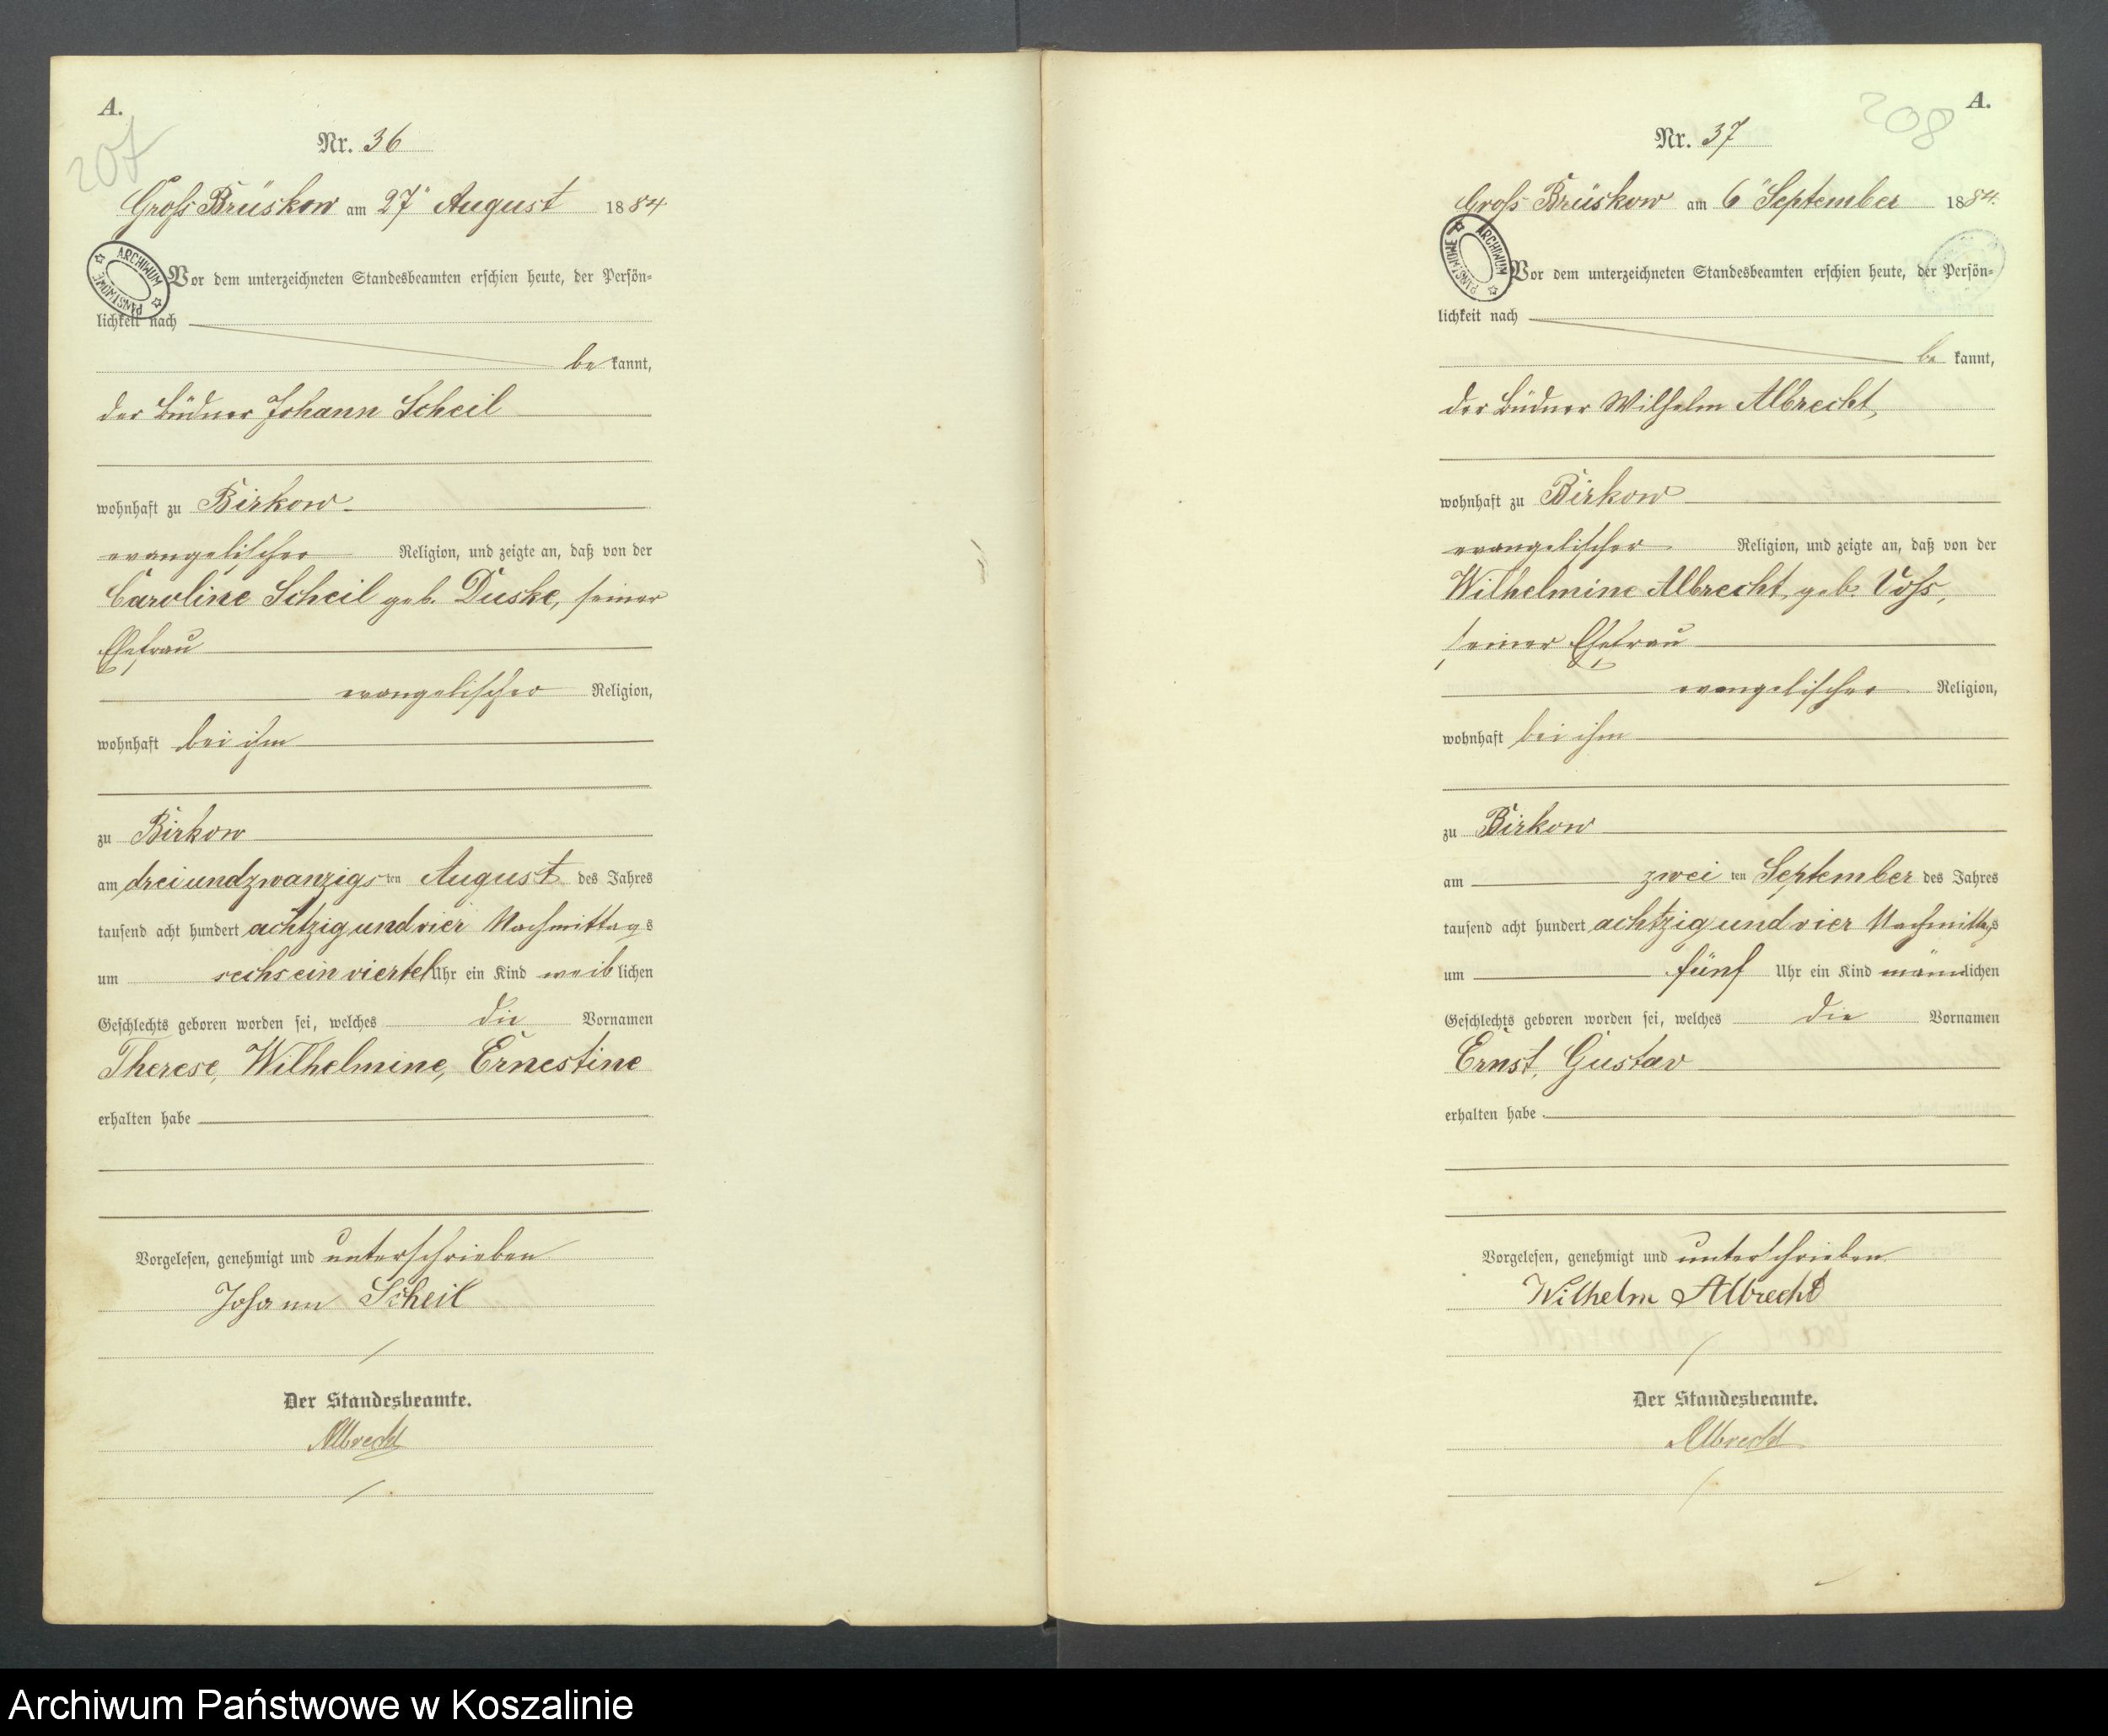 A.
207
Nr. 36
Groß Brüskow am 27" August 1884.
ARCHIWUM PAŃSTWOWE
Vor dem unterzeichneten Standesbeamten erschien heute, der Persön-
lichkeit nach
be kannt,
der Büdner Johann Scheil
wohnhaft zu Birkow
evangelischer Religion, und zeigte an, daß von der
Caroline Scheil geb. Duske, seiner
Ehefrau
evangelischer Religion,
wohnhaft bei ihm
zu Birkow
am dreiundzwanzigsten August des Jahres
tausend acht hundert achtzig und vier Nachmittags
um sechs ein viertel Uhr ein Kind weiblichen
Geschlechts geboren worden sei, welches die Vornamen
Therese, Wilhelmine, Ernestine
erhalten habe
Vorgelesen, genehmigt und unterschrieben
Johann Scheil
Der Standesbeamte.
Albrecht
A.
208
Nr. 37
Groß Brüskow am 6" September 1884.
ARCHIWUM PAŃSTWOWE
Vor dem unterzeichneten Standesbeamten erschien heute, der Persön-
lichkeit nach
be kannt,
der Büdner Wilhelm Albrecht,
wohnhaft zu Birkow
evangelischer Religion, und zeigte an, daß von der
Wilhelmine Albrecht, geb. Voß,
seiner Ehefrau
evangelischer Religion,
wohnhaft bei ihm
zu Birkow
am zwei ten September des Jahres
tausend acht hundert achtzig und vier Nachmittags
um fünf Uhr ein Kind männlichen
Geschlechts geboren worden sei, welches die Vornamen
Ernst, Gustav
erhalten habe
Vorgelesen, genehmigt und unterschrieben
Wilhelm Albrecht
Der Standesbeamte.
Albrecht
Archiwum Państwowe w Koszalinie